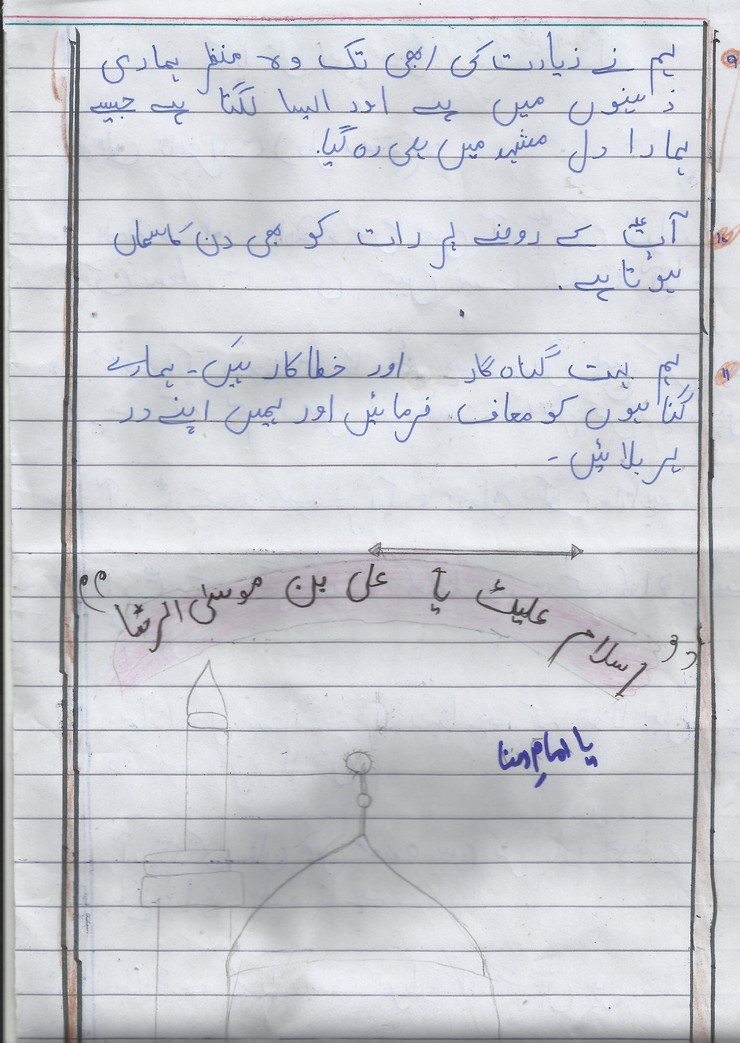 ۹ ہم نے زیارت کی ابھی تک وہ منظر ہماری
ذہنوں میں ہے اور ایسا لگتا ہے جیسے
ہمارا دل مشہد میں ہی رہ گیا.
۱۰ آپؑ کے روضے پر رات کو بھی دن کا سماں
ہوتا ہے.
۱۱ ہم بہت گناہ گار اور خطا کار ہیں۔ ہمارے
گناہوں کو معاف فرمائیں اور ہمیں اپنے در
پر بلائیں۔
"اسلام علیک یا علی بن موسیٰ الرضا"
یا امامِ رضا